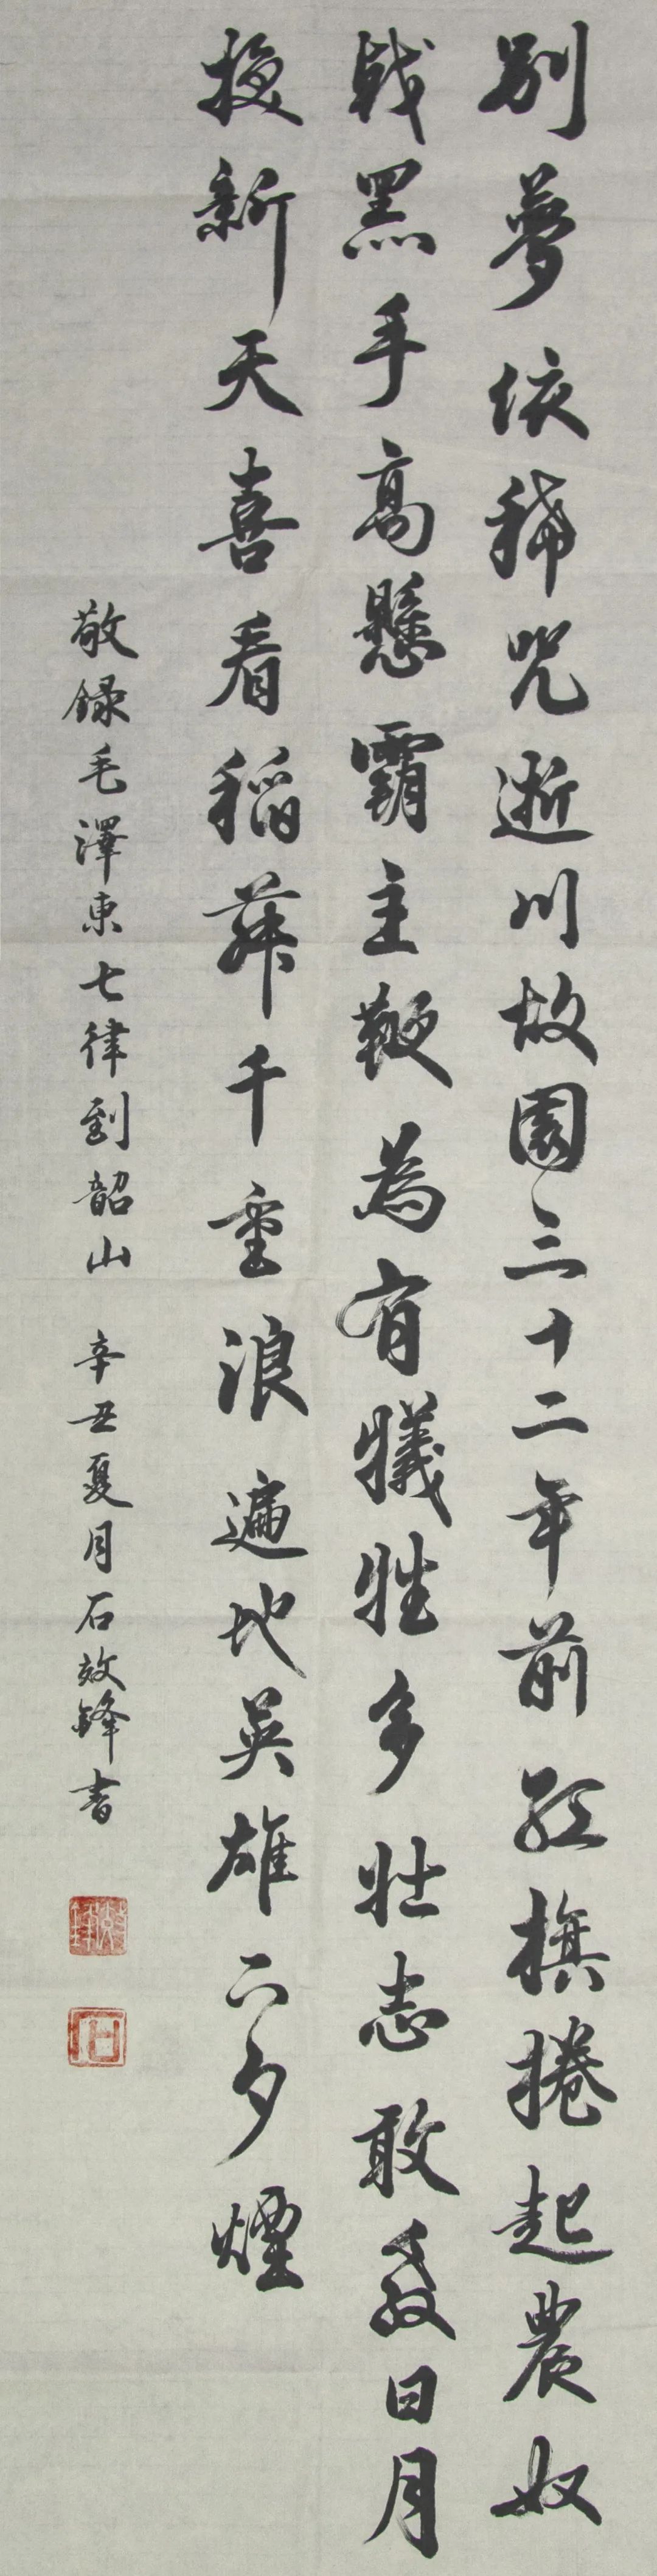 別夢依稀咒逝川故園三十二年前紅旗捲起農奴
戟黑手高懸霸主鞭為有犧牲多壯志敢教日月
換新天喜看稻菽千重浪遍地英雄下夕煙
敬錄毛澤東七律到韶山 辛丑夏月石效鋒書